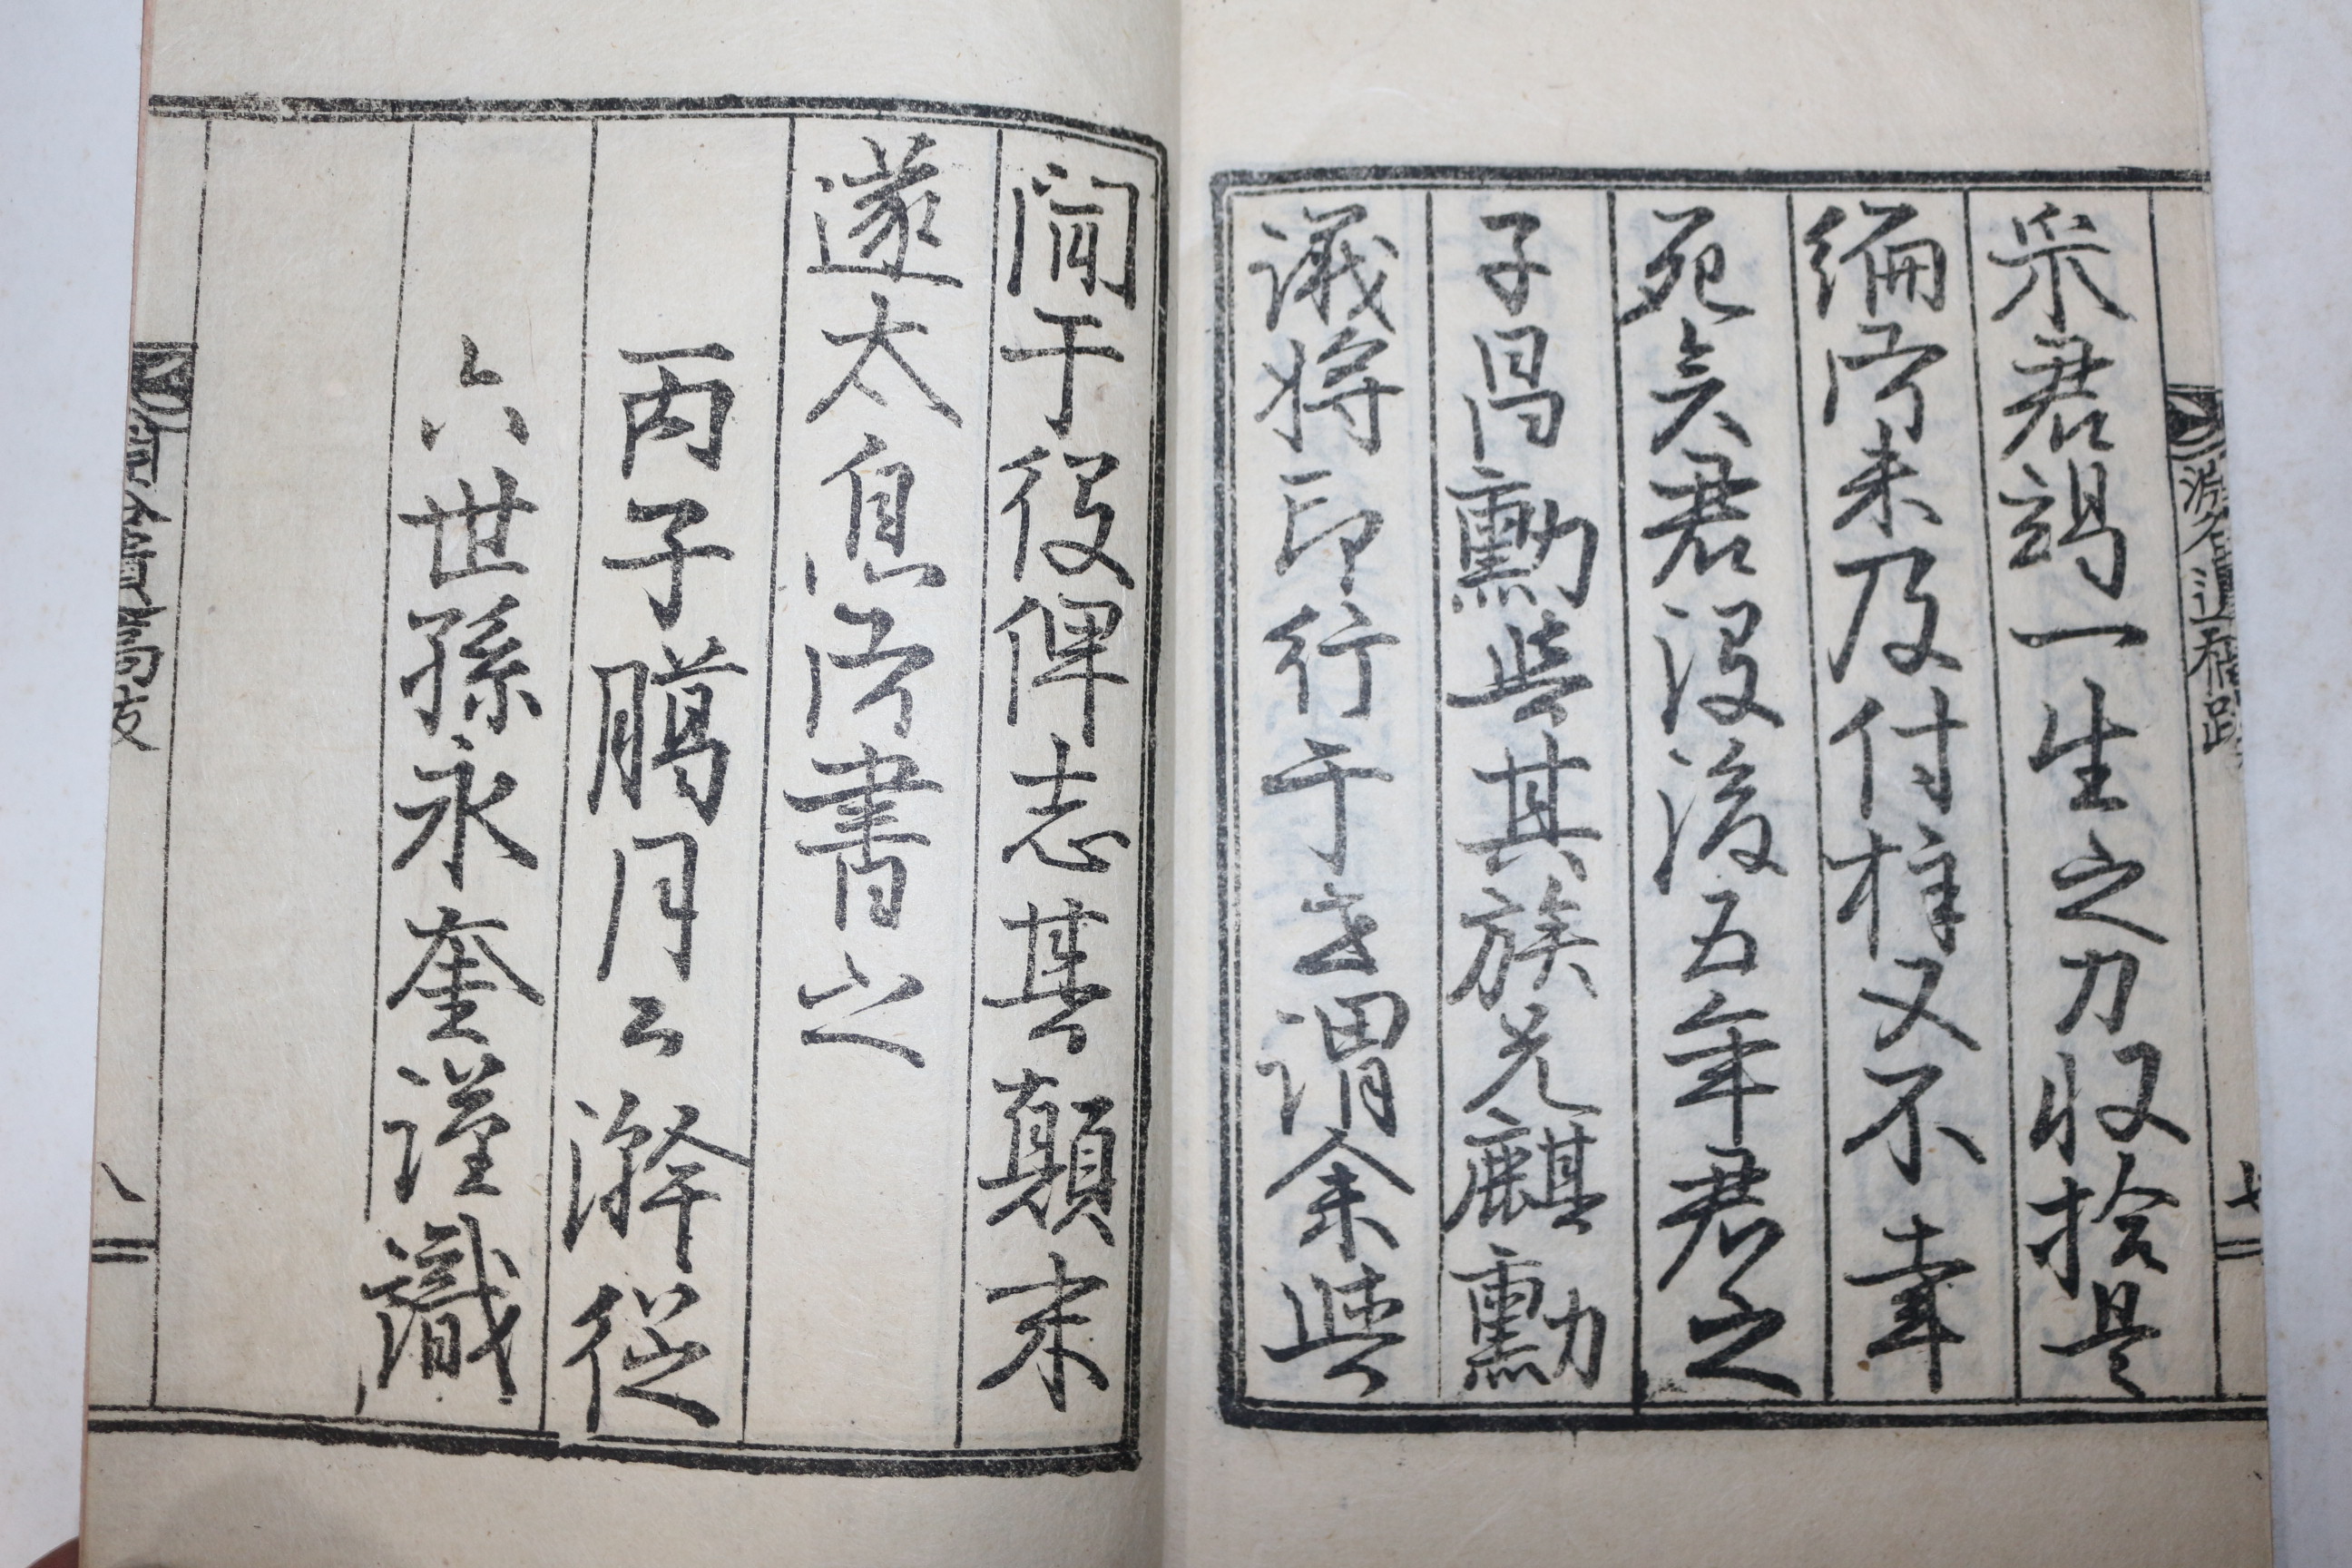 采君竭一生之力収拾是
編而未及付梓又不幸
死矣君没後五年君之
子昌勳與其族兄麒勳
議將印行于世謂余與
聞于役俾志其顚末
遂太息而書之
丙子臈月上澣從
六世孫永奎謹識